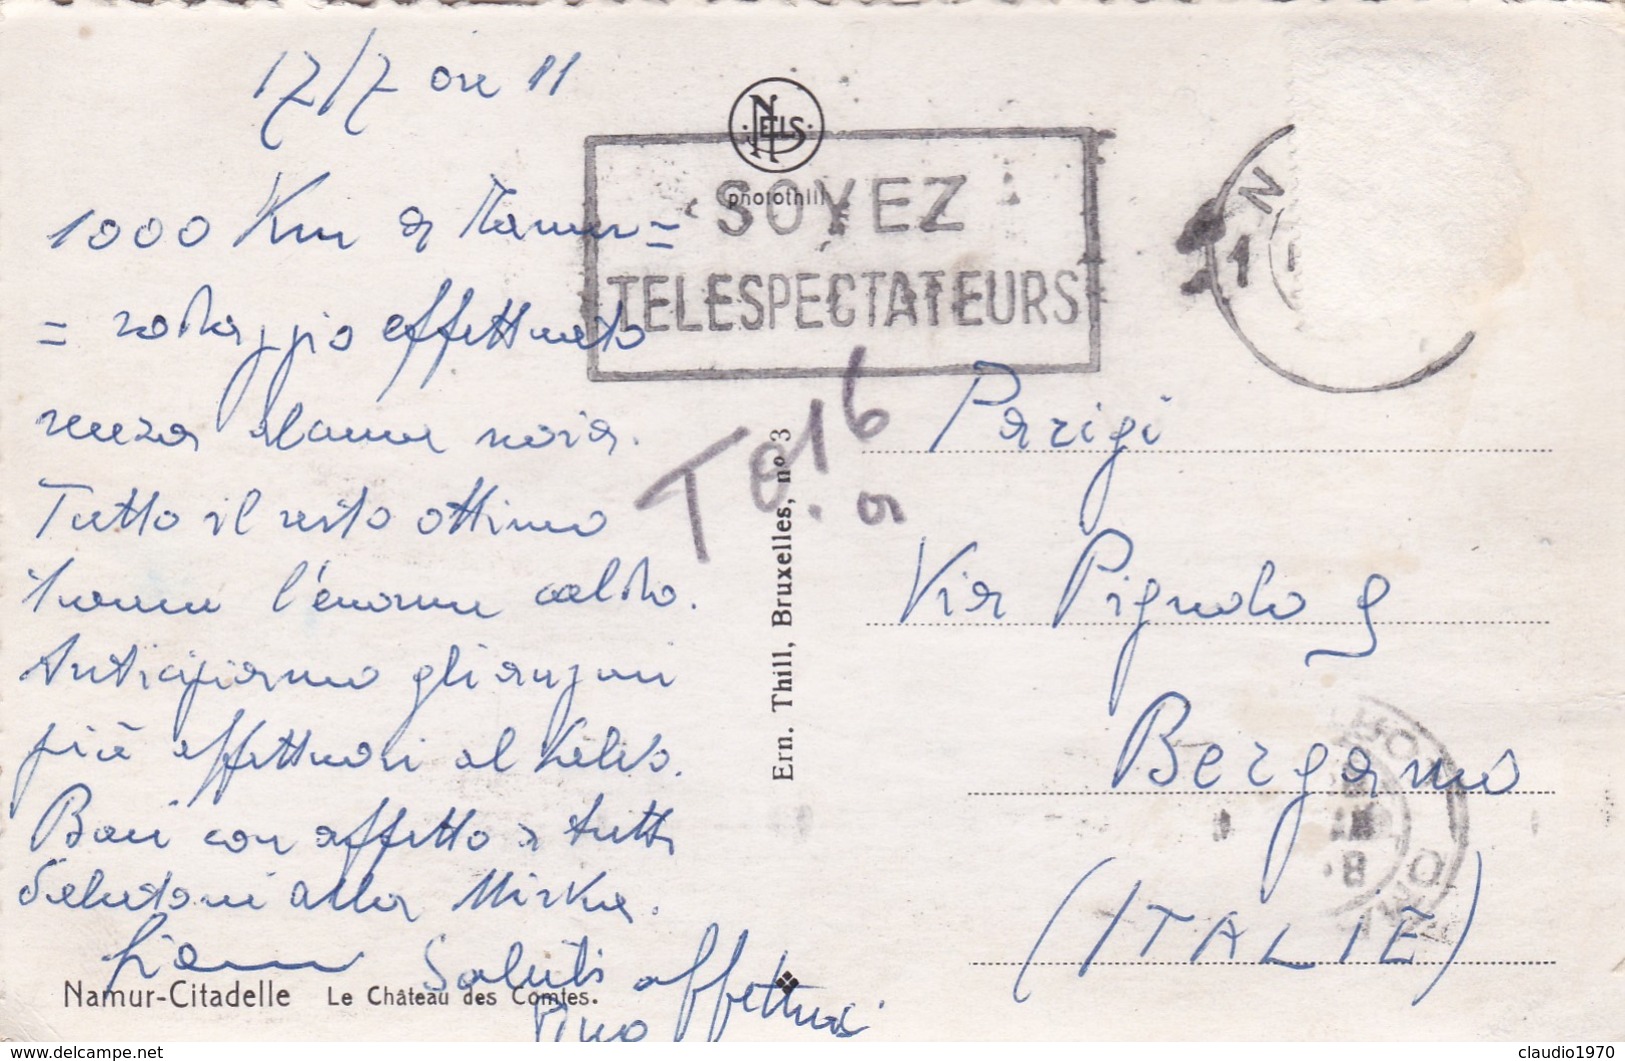 17/7 ore 11
1000 Km a Namur =
= rodaggio effettuato
senza alcuna noia.
Tutto il resto ottimo
l'enorme caldo.
Anticipiamo gli auguri
più affettuosi al
Baci con affetto a tutti
Salutoni alla Mirka.
Saluti affettuosi
Pino
NELS
photothill
SOYEZ
TELESPECTATEURS
N
1
T 0,16
Ern. Thill, Bruxelles, no 3
Parigi
Via Pignolo 9
Bergamo
(ITALIE)
Namur-Citadelle Le Château des Comtes.
claudio1970